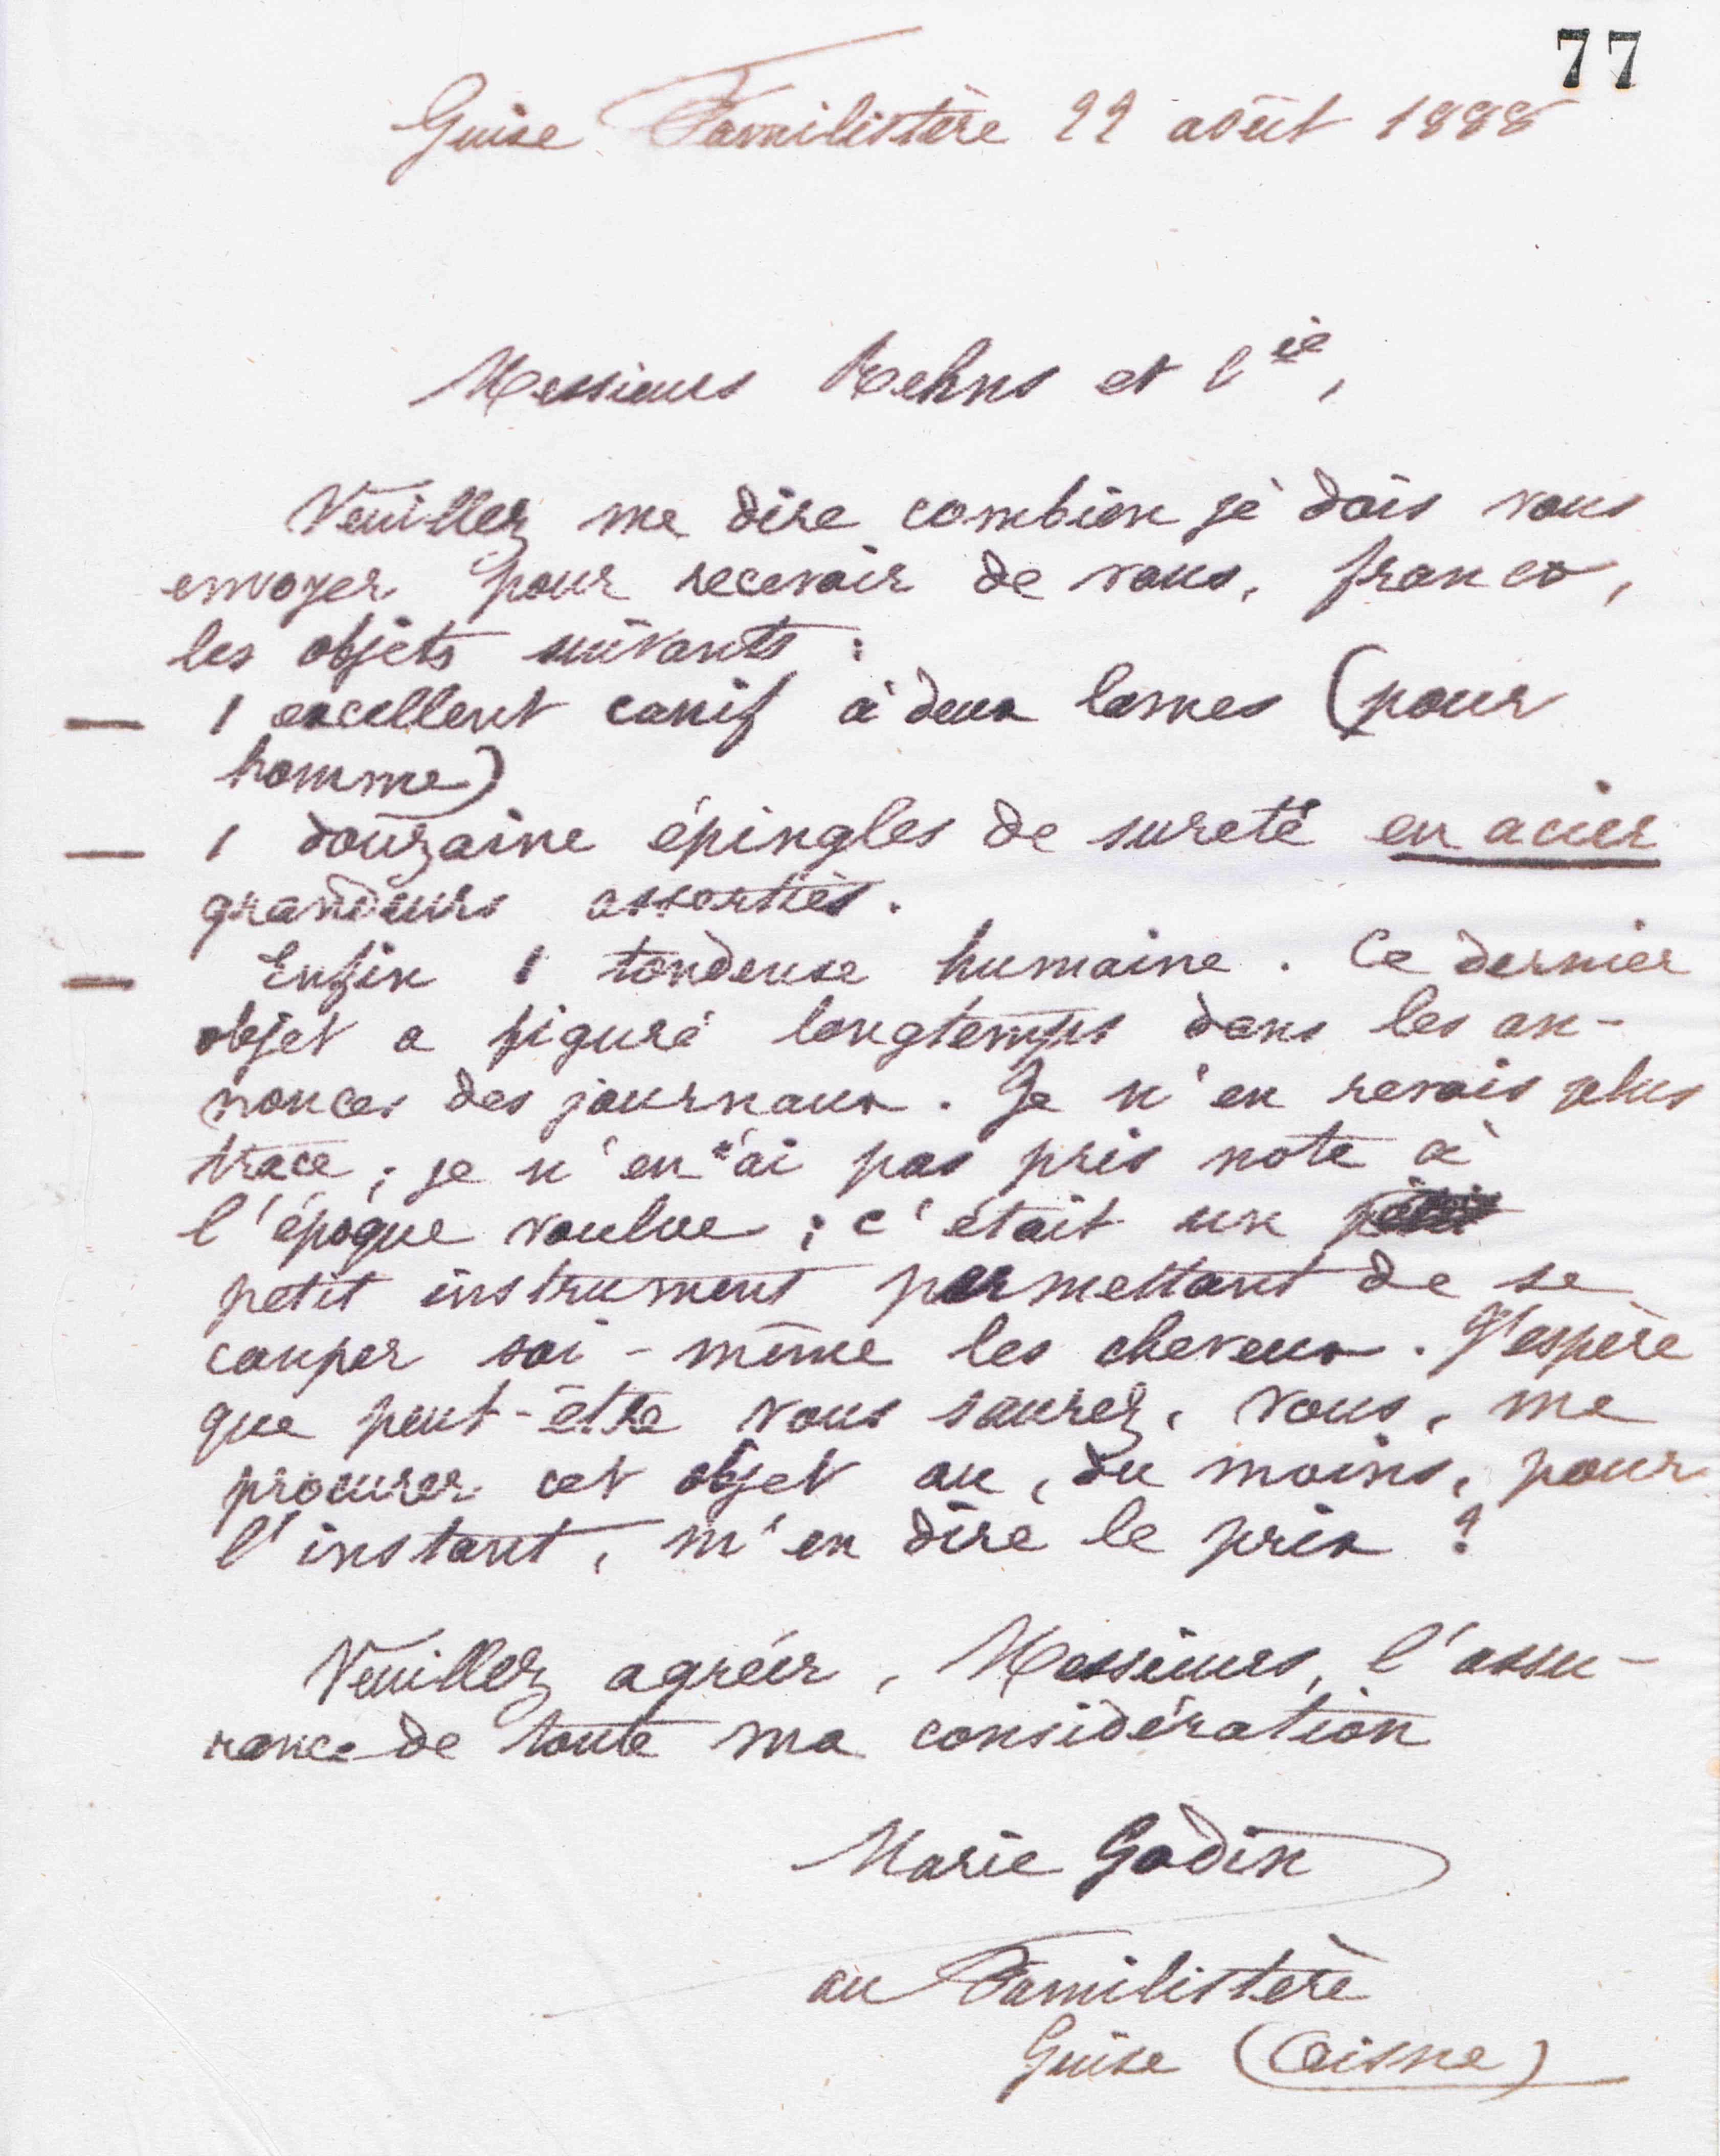 77
Guise Familistère 22 août 1888
Messieurs Rehns et Cie,
Veuillez me dire combien je dois vous
envoyer pour recevoir de vous, franco,
les objets suivants :
— 1 excellent canif à deux lames (pour
homme)
— 1 douzaine épingles de sureté en acier
grandeurs assorties.
— Enfin 1 tondeuse humaine. Ce dernier
objet a figuré longtemps dans les an-
nonces des journaux. Je n'en revois plus
trace ; je n'en ai pas pris note à
l'époque voulue ; c'était un petit
petit instrument permettant de se
couper soi-même les cheveux. J'espère
que peut-être vous saurez, vous, me
procurer cet objet ou, du moins, pour
l'instant, m'en dire le prix ?
Veuillez agréer, Messieurs, l'assu-
rance de toute ma considération
Marie Godin
au Familistère
Guise (Aisne)